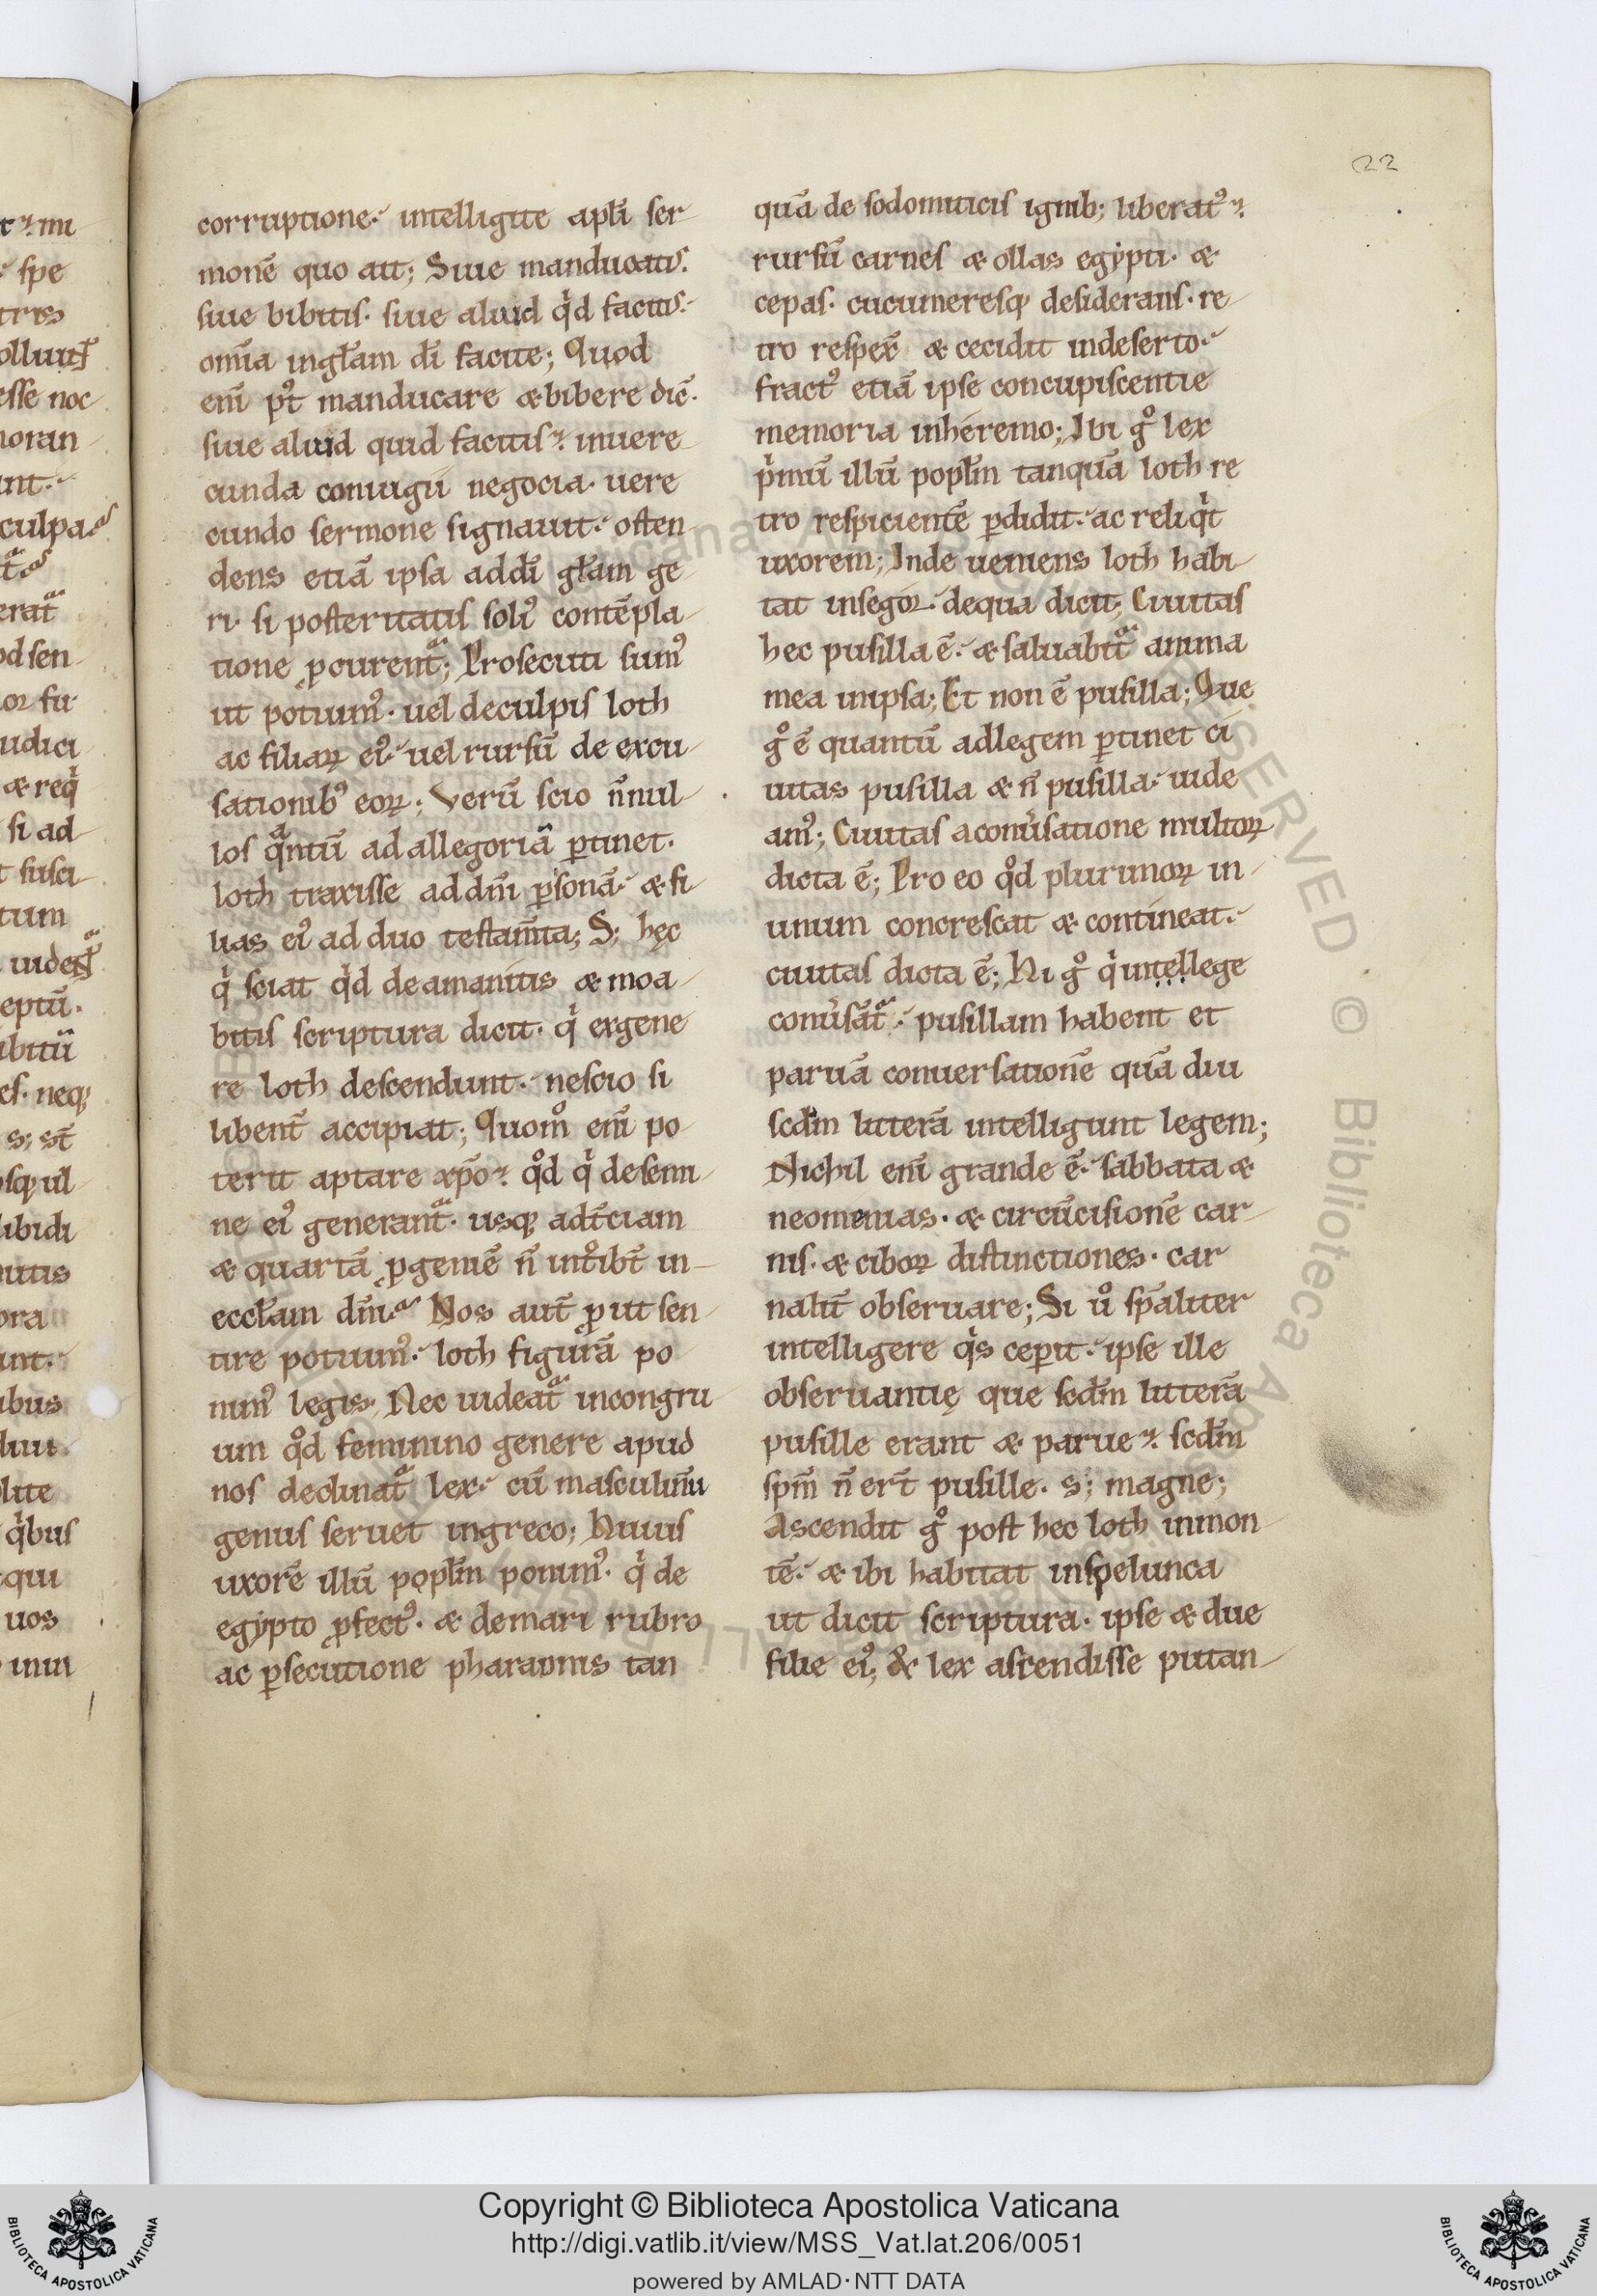 22
corruptione. intelligite apłi ser
monē quo ait; Siue manducatis.
siue bibitis. siue aliuid qͥd facitis.
om̄ia ingłam dī facite; Quod
enī pͦt manducare & bibere dic̄.
siue aliuid quid facitis. inuere
cunda coniugū negocia. uere
cundo sermone signauit. osten
dens etiā ipsa addī głam ge
ri. si posteritatis soliꝰ contēpla
tione ꝓcurent̄ᵃ; Prosecuti sumꝰ
ut potuimꝰ. uel deculpis loth
ac filiaꝝ eiꝰ. uel rursū de excu
sationibꝰ eoꝝ; Verū scio n̄nul
los qᵃntū ad allegoriā ꝑtinet.
loth traxisse addn̄i ꝑsonā. & fi
lias eiꝰ ad duo testam̄ta; S; hęc
qͥ sciat qͥd deamanitis & moa
bitis scriptura dicit. qͥ exgene
re loth descendunt. nescio si
libent̄ accipiat; Quom̊ enī po
terit aptare xp̄o. qͦd qͥ desemi
ne eiꝰ generant̄ᵃ. usqꝫ adt̄ciam
& quartā ꝓgeniē n̄ int̊ibt̄ in
eccłam dn̄i. Nos aut̄ ꝓut sen
tire potuimꝰ. loth figurā po
nimꝰ legis. Nec uideat̄ᵃ incongru
um qͦd feminino genere apud
nos declinat̄ᵃ lex. cū masculinū
genus seruet ingreco; Huius
uxorē illū popłm ponimꝰ. qͥ de
egypto ꝓfectꝰ. & demari rubro
ac ꝑsecutione pharaonis tan
quā de sodomiticis ignib; liberatꝰ.
rursū carnes & ollas egypti. &
cepas. cucumeresqꝫ desiderans. re
tro respex̄ & cecidit indeserto.
factꝰ etiā ipse concupiscentie
memoria inheremo; Ibi g̊ lex
pͥmū illū popłm tanquā loth re
tro respicientē ꝑdidit. ac reliqͥt
uxorem; Inde ueniens loth habi
tat insegoꝝ. dequa dicit; Ciuitas
hec pusilla ē. & saluabit̄ᵃ anima
mea inipsa; Et non ē pusilla; Que
g̊ ē quantū adlegem ꝑtinet ci
uitas pusilla & n̄ pusilla. uide
amꝰ; Ciuitas aconuͥsatione multoꝝ
dicta ē; Pro eo qͦd plurimoꝝ in
unum concrescat & contineat.
ciuitas dicta ē; Hi g̊ qͥ intellege
conuͥsāt̄ᵃ. pusillam habent et
paruā conuersationē quā diu
scdm̄ litterā intelligunt legem;
Nichil enī grande ē. sabbata &
neomenias. & circūcisionē car
nis. & ciboꝝ distinctiones. car
nalit̄ obseruare; Si u̇̊ sp̄aliter
intelligere qͥs ceꝑit. ipse ille
obseruantię que scdm̄ litterā
pusille erant & parue. scdm̄
spm̄ n̄ ert̄ pusille. s; magne;
Ascendit g̊ post hec loth inmon
tē. & ibi habitat inspelunca
ut dicit scriptura. ipse & due
filie eiꝰ; & lex ascendisse putan
Copyright © Biblioteca Apostolica Vaticana
http://digi.vatlib.it/view/MSS_Vat.lat.206/0051
powered by AMLAD·NTT DATA
BIBLIOTECA APOSTOLICA VATICANA
BIBLIOTECA APOSTOLICA VATICANA